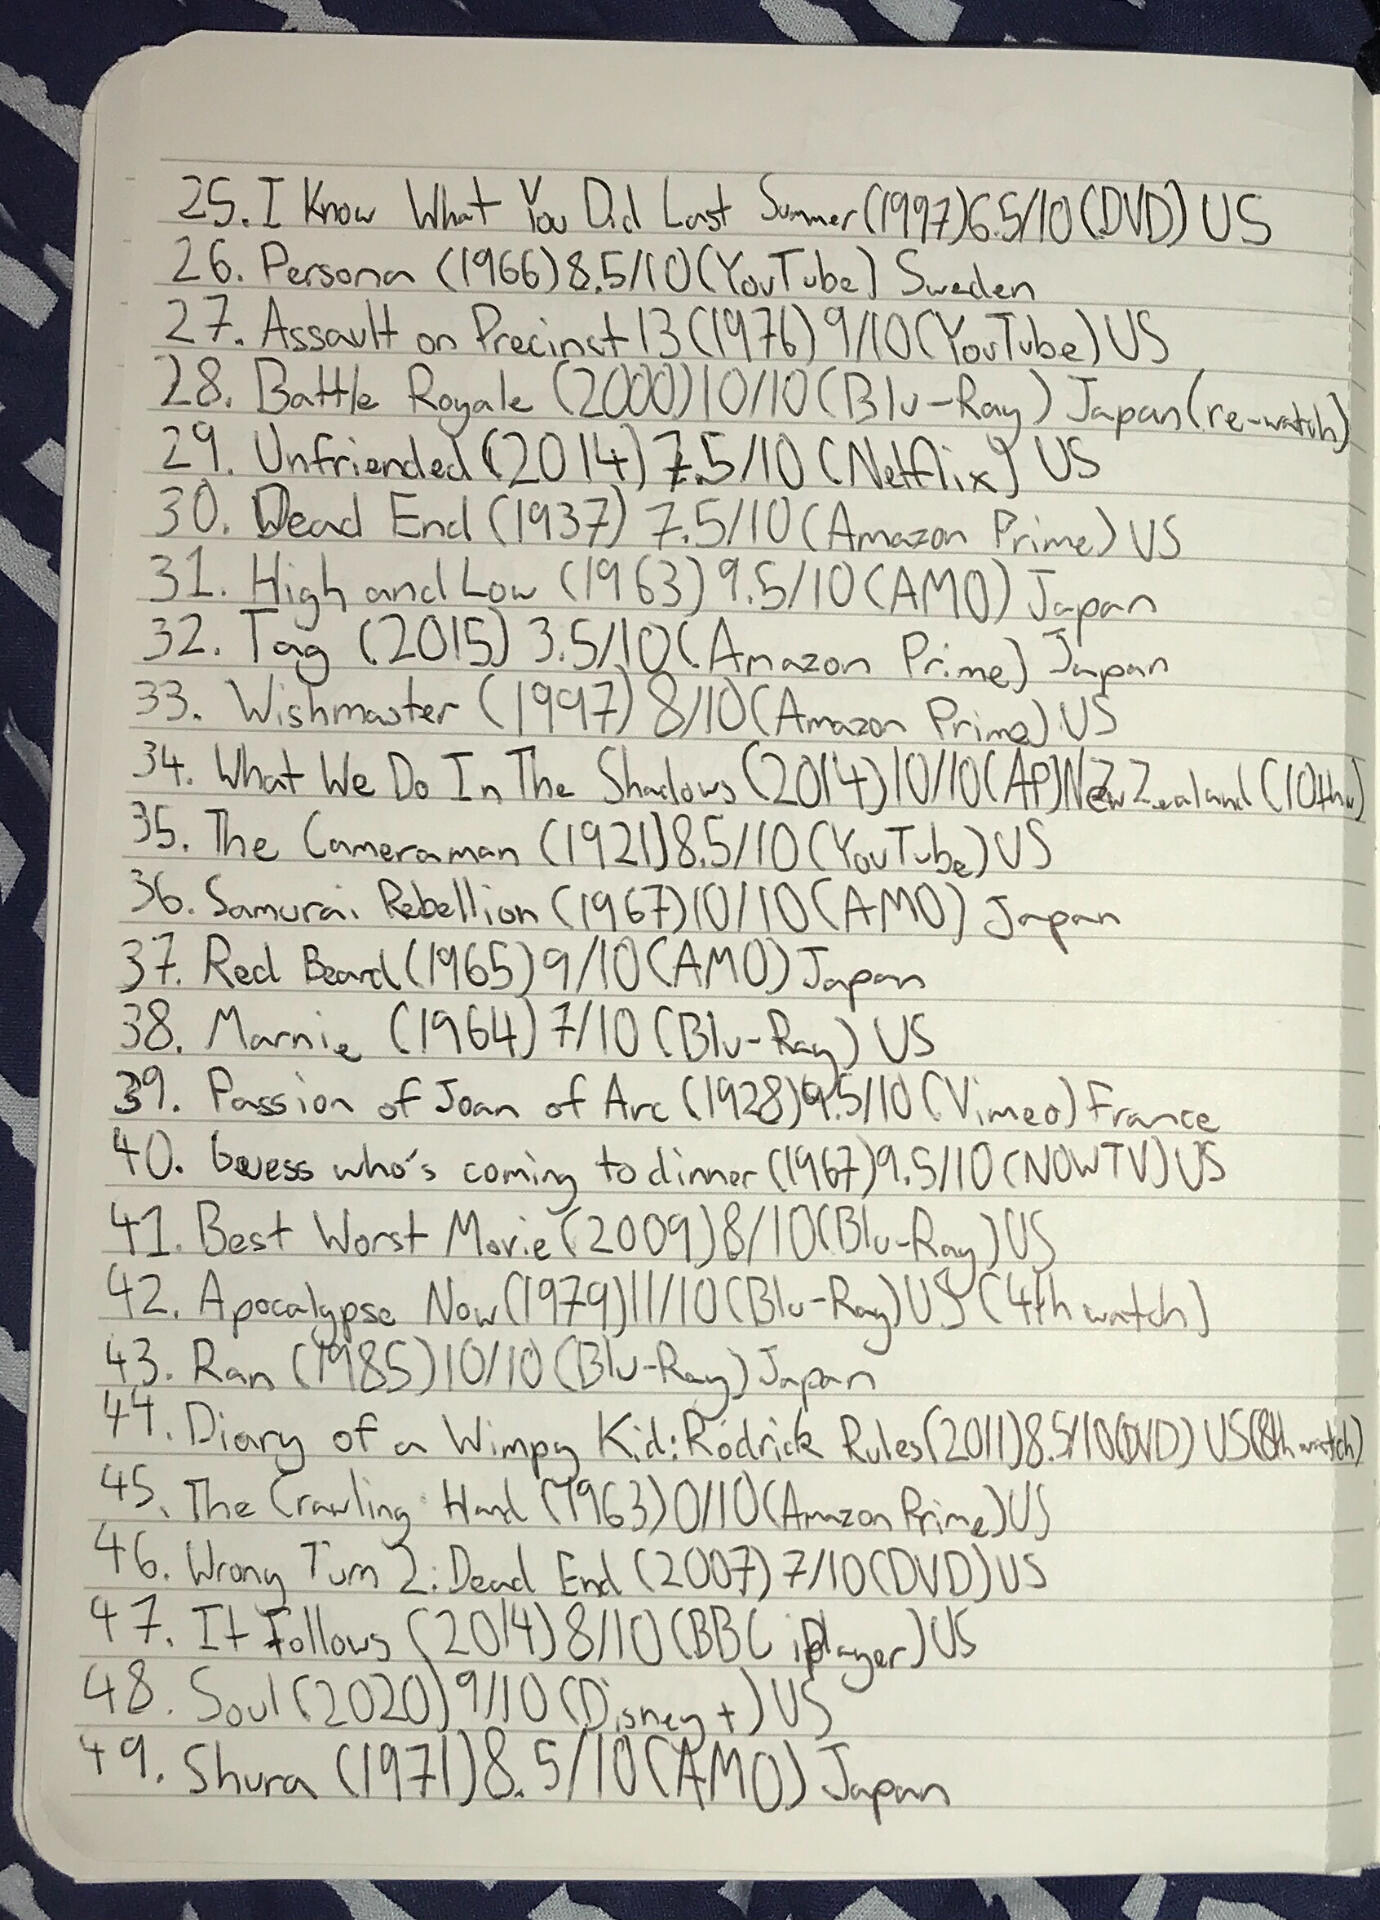 25. I Know What You Did Last Summer (1997) 6.5/10 (DVD) US
26. Persona (1966) 8.5/10 (YouTube) Sweden
27. Assault on Precinct 13 (1976) 9/10 (YouTube) US
28. Battle Royale (2000) 10/10 (Blu-Ray) Japan (re-watch)
29. Unfriended (2014) 7.5/10 (Netflix) US
30. Dead End (1937) 7.5/10 (Amazon Prime) US
31. High and Low (1963) 9.5/10 (AMO) Japan
32. Tag (2015) 3.5/10 (Amazon Prime) Japan
33. Wishmaster (1997) 8/10 (Amazon Prime) US
34. What We Do In The Shadows (2014) 10/10 (AP) New Zealand (10th w)
35. The Cameraman (1921) 8.5/10 (YouTube) US
36. Samurai Rebellion (1967) 10/10 (AMO) Japan
37. Red Beard (1965) 9/10 (AMO) Japan
38. Marnie (1964) 7/10 (Blu-Ray) US
39. Passion of Joan of Arc (1928) 9.5/10 (Vimeo) France
40. Guess who's coming to dinner (1967) 9.5/10 (NOWTV) US
41. Best Worst Movie (2009) 8/10 (Blu-Ray) US
42. Apocalypse Now (1979) 11/10 (Blu-Ray) US (4th watch)
43. Ran (1985) 10/10 (Blu-Ray) Japan
44. Diary of a Wimpy Kid: Rodrick Rules (2011) 8.5/10 (DVD) US (8th watch)
45. The Crawling Hand (1963) 0/10 (Amazon Prime) US
46. Wrong Turn 2: Dead End (2007) 7/10 (DVD) US
47. It Follows (2014) 8/10 (BBC iplayer) US
48. Soul (2020) 9/10 (Disney+) US
49. Shura (1971) 8.5/10 (AMO) Japan